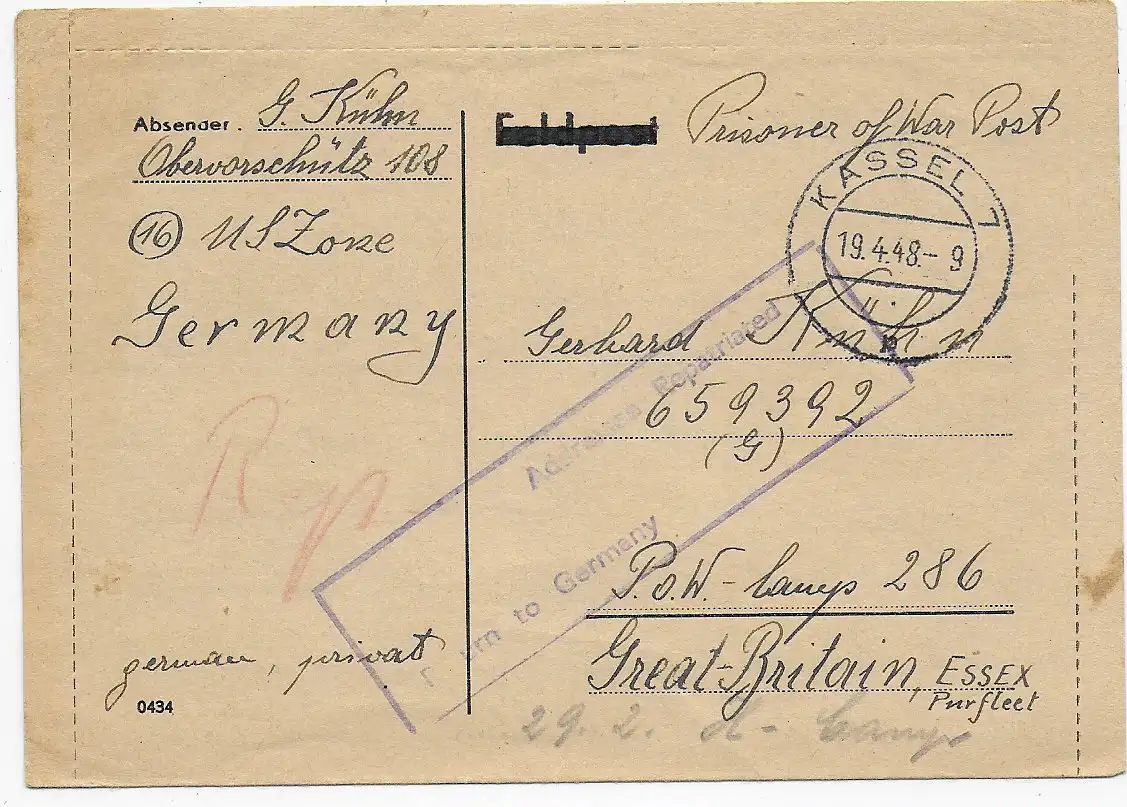 Absender. G. Kühn
Obervorschütz 108
(16) US Zone
Germany
german, privat
0434
Feldpost
Prisoner of War Post
KASSEL 7
19.4.48.- 9
Gerhard Kühn
659392
(G)
Addressee Repatriated
Return to Germany
P.o.W- Camp 286
Great-Britain, ESSEX
Purfleet
29. 2.
Camp